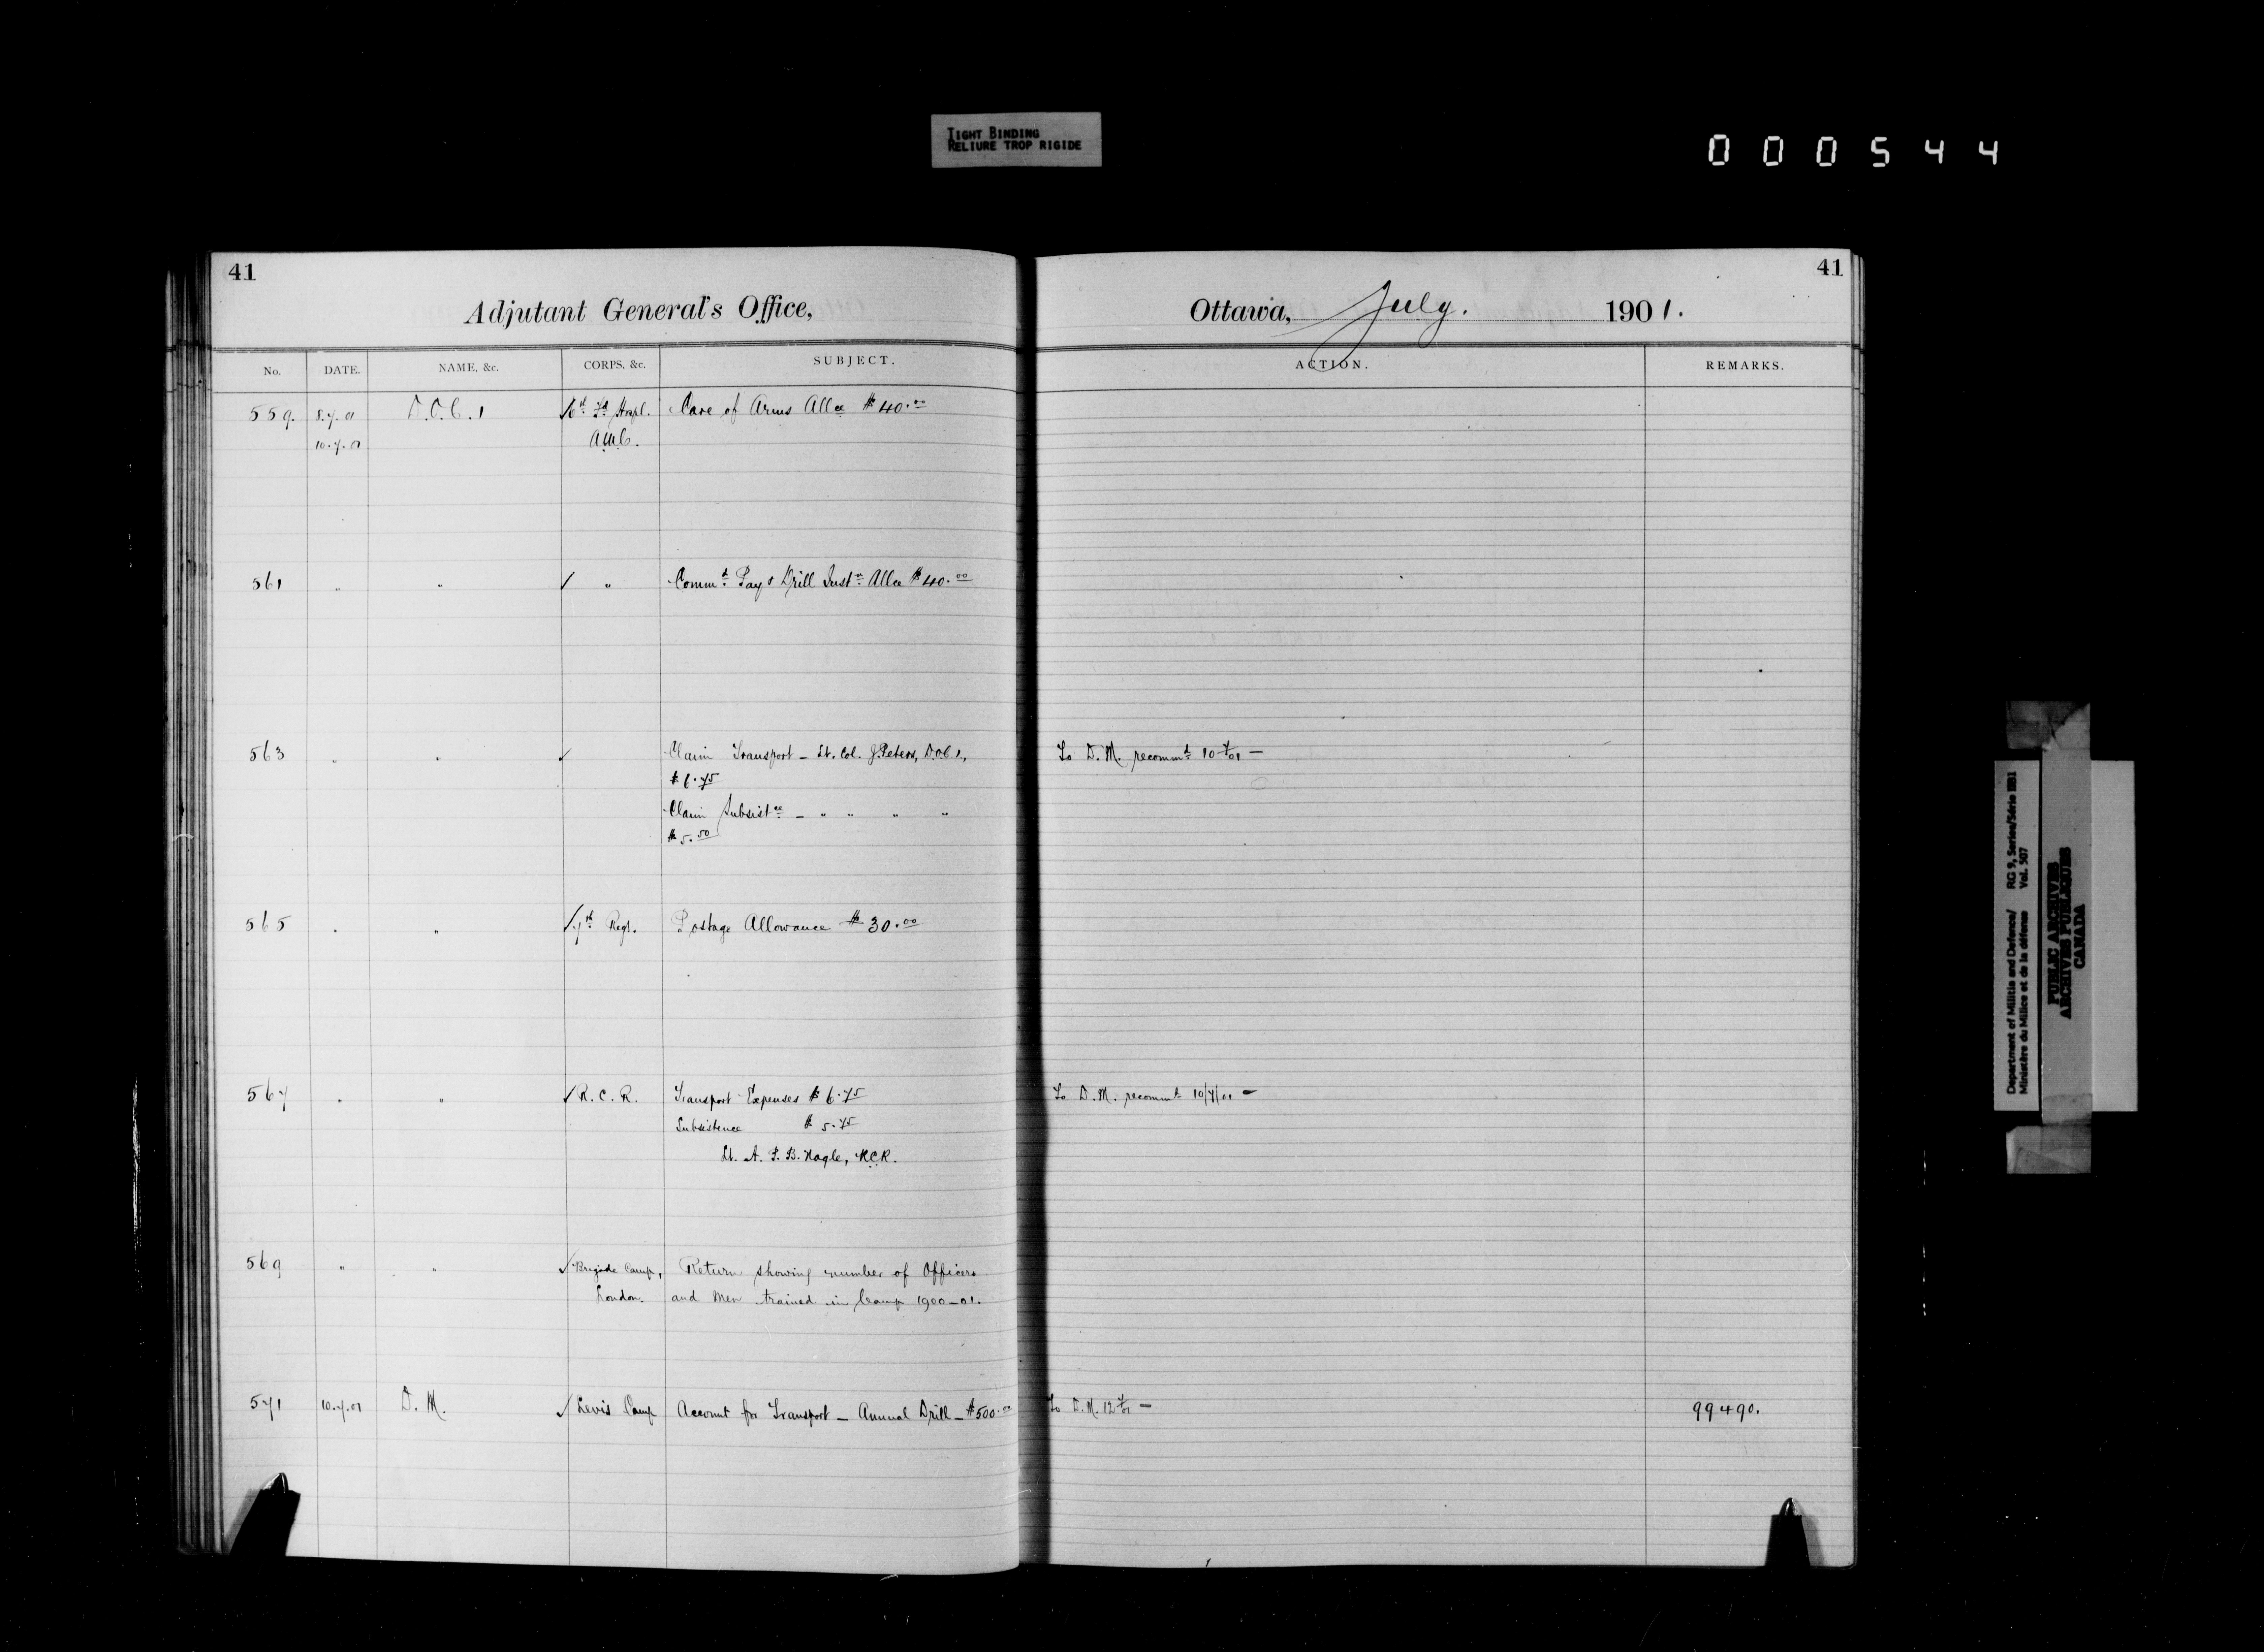 TIGHT BINDING
RELIURE TROP RIGIDE
000544
41
Adjutant General's Office,
No. DATE. NAME, &c. CORPS, &c. SUBJECT.
559. 8.7.01 D.O.C. 1 ✓6th Fd Hospl. Care of Arms Allce $40.00
10.7.01 A.M.C.
561 " " ✓ " Commd Pay & Drill Instn Allce $40.00
563 " " ✓ Claim Transport – Lt. Col. J. Peters, D.O.C 1.,
$6.75
Claim Subsistce – " " " "
$5.50
565 " " ✓7th Regt. Postage Allowance $30.00
567 " " ✓R.C.R. Transport Expenses $6.75
Subsistence $5.75
Lt. A. F. B. Nagle, RCR.
569 " " ✓Brigade Camp, Return showing number of Officers
London. and Men trained in Camp 1900–01.
571 10.7.01 D.M. ✓Levis Camp Account for Transport – Annual Drill – $500.00
41
Ottawa, July. 1901.
ACTION. REMARKS.
To D.M. recommd 10 7/01 –
To D.M. recommd 10/7/01 –
To D.M. 12 7/01 – 99490.
Department of Militia and Defence/ RG 9, Series/Série IIB1
Ministère du Milice et de la défense Vol. 507
PUBLIC ARCHIVES
ARCHIVES PUBLIQUES
CANADA